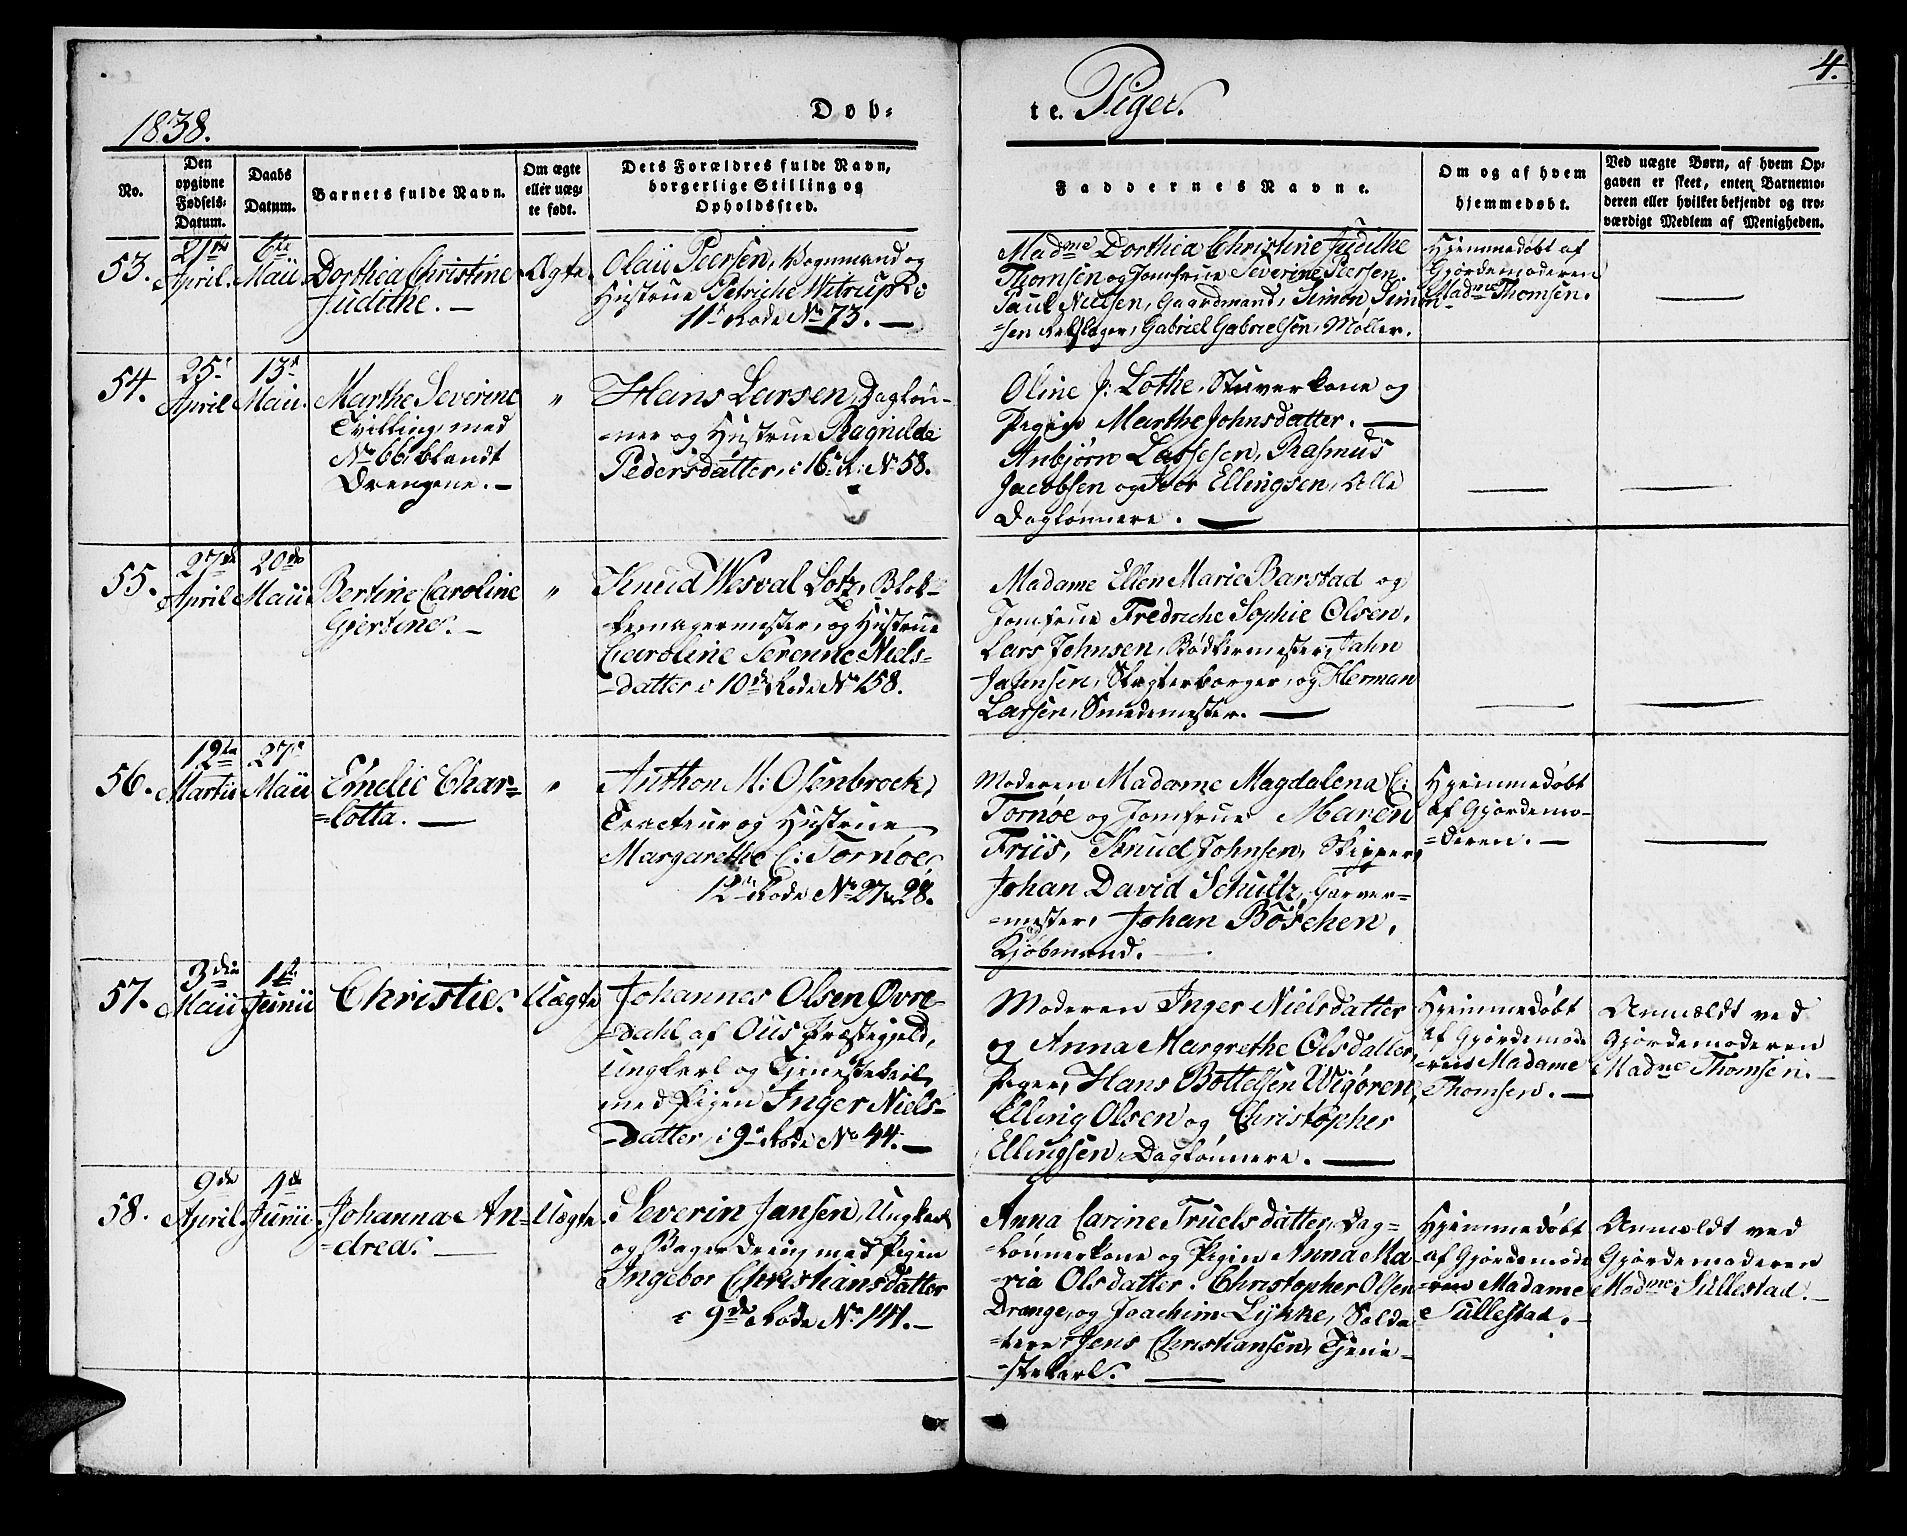 4.
1838.
Døb-
te Piger.
No.
Den opgivne Fødsels-Datum.
Daabs Datum.
Barnets fulde Navn.
Om ægte eller uægte født.
Dets Forældres fulde Navn, borgerlige Stilling og Opholdssted.
Faddernes Navne.
Om og af hvem hjemmedøbt.
Ved uægte Børn, af hvem Opgaven er skeet, enten Barnemoderen eller hvilket bekjendt og troværdigt Medlem af Menigheden.
53.
21de April.
6te Maii
Dorthea Christine
Judithe. —
Ægte.
Olaü Peersen, Vognmand og
Hustrue Petriche Witrup i
11te Rode No 73. —
Madme Dorthea Christine Judithe
Thomsen og Jomfrue Severine Peersen.
Paul Nielsen, Gaardmand, Simon Simon-
=sen Rebslager, Gabriel Gabrielsen, Møller.
Hjemmedøbt af
Gjordemoderen
Madme Thomsen.
—
54.
25de April
13de Maii.
Marthe Severine
Tvilling med
No 66 blandt
Drengene. —
"
Hans Larsen, Dagløn-
=ner og Hustrue Ragnilde
Pedersdatter, i 16: R: No 58.
Oline J: Lothe, Stüverkone og
Pigen Marthe Johnsdatter. —
Anbjørn Lassesen, Rasmus
Jacobsen og Iver Ellingsen, Alle
Daglønnere. —
—
—
55.
27de April
20de Maii
Bertine Caroline
Gjertine. —
"
Knud Wesval Lotz, Blok-
kemagermester, og Hustrue
Caroline Serenne Niels-
=datter i 10de Rode No 158.
Madame Ellen Marie Barstad og
Jomfrue Fredriche Sophie Olsen.
Lars Johnsen, Bødkermester, Jahn
Jahnsen, Slagterborger, og Herman
Larsen, Smedemester. —
—
—
56.
12te Martii
27de Maii
Emelie Char=
=lotta. —
"
Anthon M: Osenbroek,
Tracteur og Hustrue
Margarethe C: Tornøe
12te Rode No 27 & 28.
Moderen Madame Magdalena C:
Tornøe og Jomfrue Maren
Friis, Knud Johnsen, Skipper,
Johan David Schultz, Garver-
=mester, Johan Böschen,
Kjøbmand.
Hjemmedøbt
af Gjordemo-
=deren. —
—
57.
3die Maii
1te Junii
Christie.
Uægte
Johannes Olsen Øvre-
=Dahl af Ous Præstegjeld,
Ungkarl og Tjenestekarl,
med Pigen Inger Niels-
=datter, i 9de Rode No 44. —
Moderen Inger Nielsdatter
og Anna Margrethe Olsdatter,
Piger, Hans Bottelsen Wigøren,
Elling Olsen og Christopher
Ellingsen, Daglønnere. —
Hjemmedøbt
af Gjordemode
=ren Madame
Thomsen. —
Anmeldt ved
Gjordemoderen
Madme Thomsen. —
58.
9de April.
4de Junii.
Johanna An-
=drea. —
Uægte.
Severin Jansen, Ungkarl
og Bagerdreng med Pigen
Ingebor Christiansdatter
i 9de Rode No 141. —
Anna Carine Truelsdatter, Dag-
=lønnerkone og Pigen Anna Ma
=ria Olsdatter. Christopher Olsen
Drange, og Joachim Lykke, Solda
=tere, Jens Christiansen, Tjene-
=stekarl. —
Hjemmedøbt
af Gjordemode
=ren Madame
Tüllestad. —
Anmeldt ved
Gjordemoderen
Madme Tüllestad. —